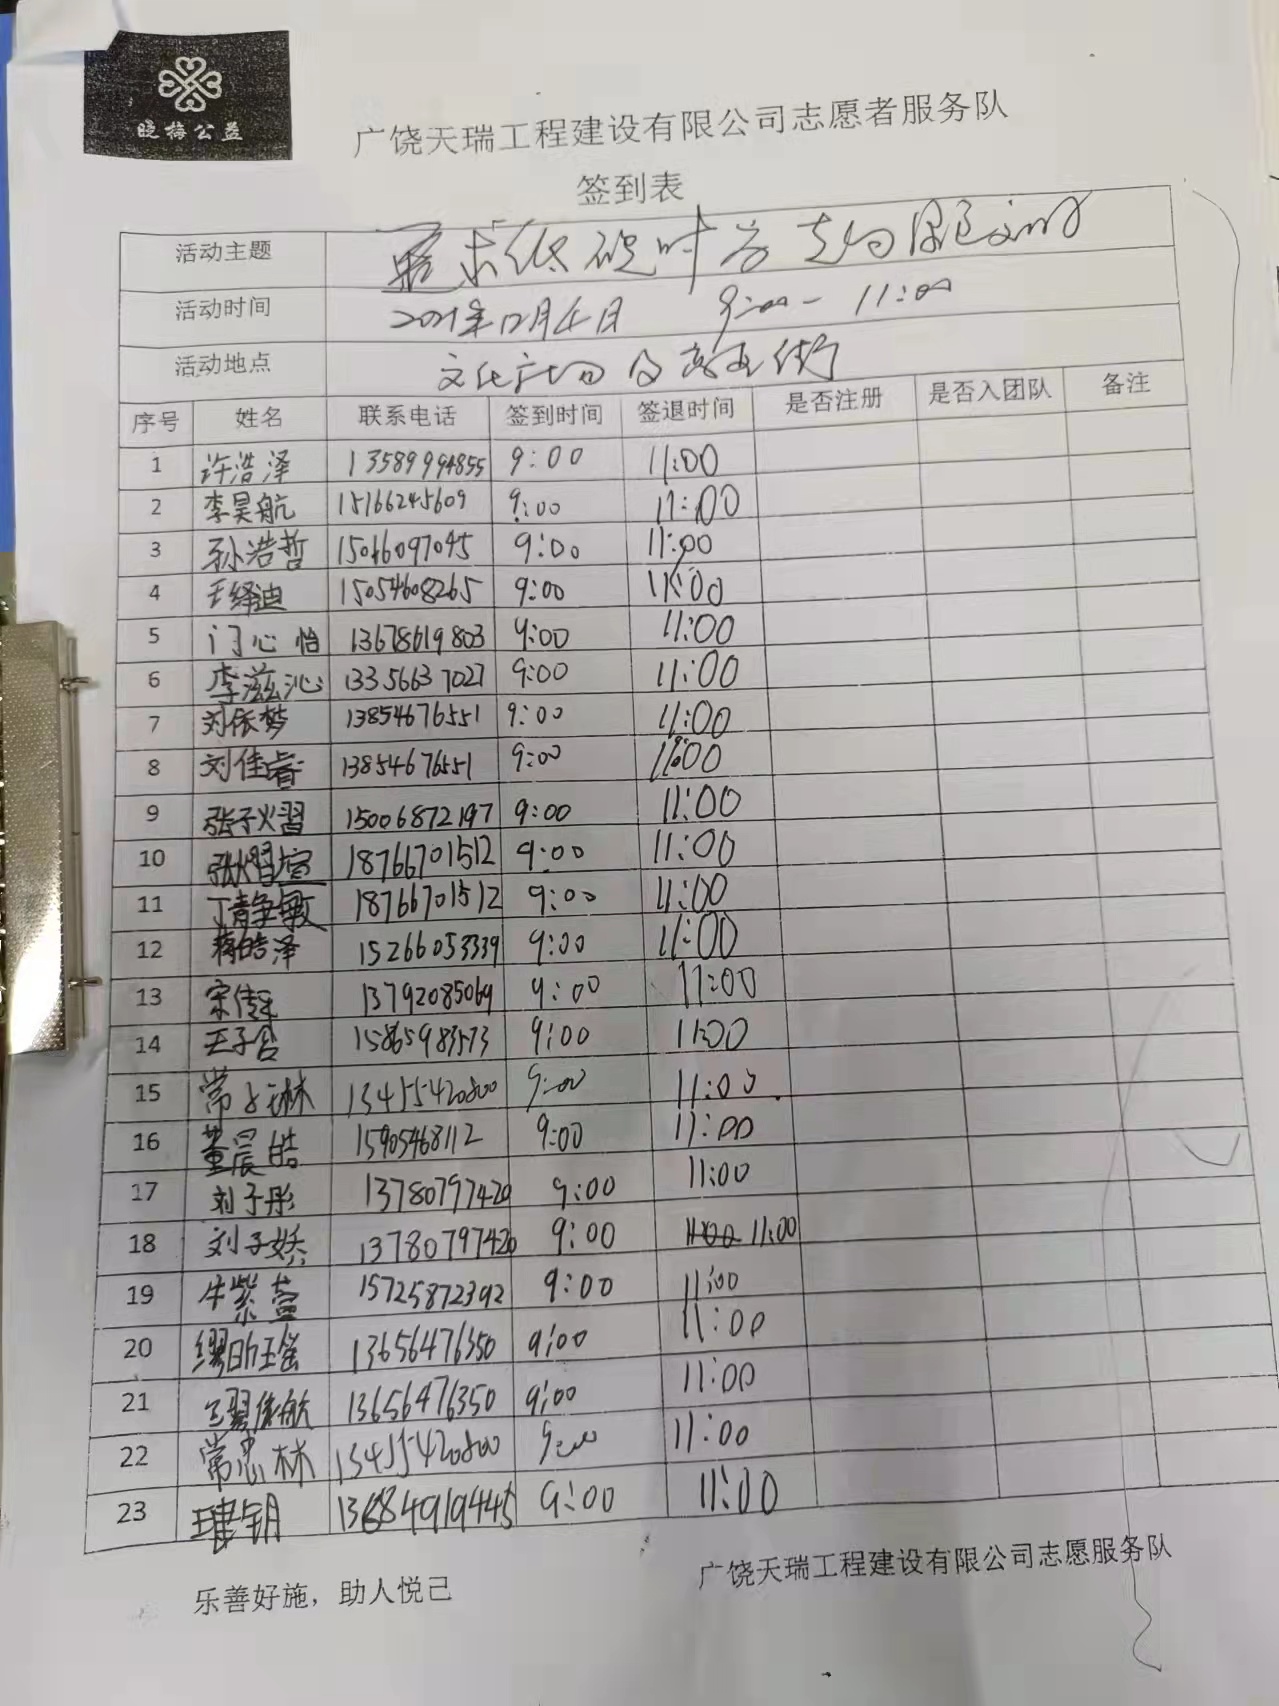 晓梅公益
广饶天瑞工程建设有限公司志愿者服务队
签到表
活动主题 低碳时尚
活动时间 2021年12月4日 9:00-11:00
活动地点 文化广场及商业街
序号 姓名 联系电话 签到时间 签退时间 是否注册 是否入团队 备注
1 许浩泽 13589994855 9:00 11:00
2 李昊航 15166245609 9:00 11:00
3 孙浩哲 15046097045 9:00 11:00
4 王绎迪 15054608265 9:00 11:00
5 门心怡 13678619803 9:00 11:00
6 李滋沁 13356637027 9:00 11:00
7 刘依梦 13854676551 9:00 11:00
8 刘佳睿 13854676551 9:00 11:00
9 张子熠 15006872197 9:00 11:00
10 张熠萱 18766701512 9:00 11:00
11 丁静敏 18766701512 9:00 11:00
12 蒋皓泽 15266053339 9:00 11:00
13 13792085069 9:00 11:00
14 王子含 15865983573 9:00 11:00
15 常子琳 13455420800 9:00 11:00
16 董晨皓 15905468112 9:00 11:00
17 刘子彤 13780797420 9:00 11:00
18 刘子娇 13780797420 9:00 11:00 11:00
19 牛紫萱 15725872392 9:00 11:00
20 缪昕瑶 13656476350 9:00 11:00
21 13656476350 9:00 11:00
22 常忠林 13455420800 9:00 11:00
23 13684919445 9:00 11:00
乐善好施，助人悦己
广饶天瑞工程建设有限公司志愿服务队